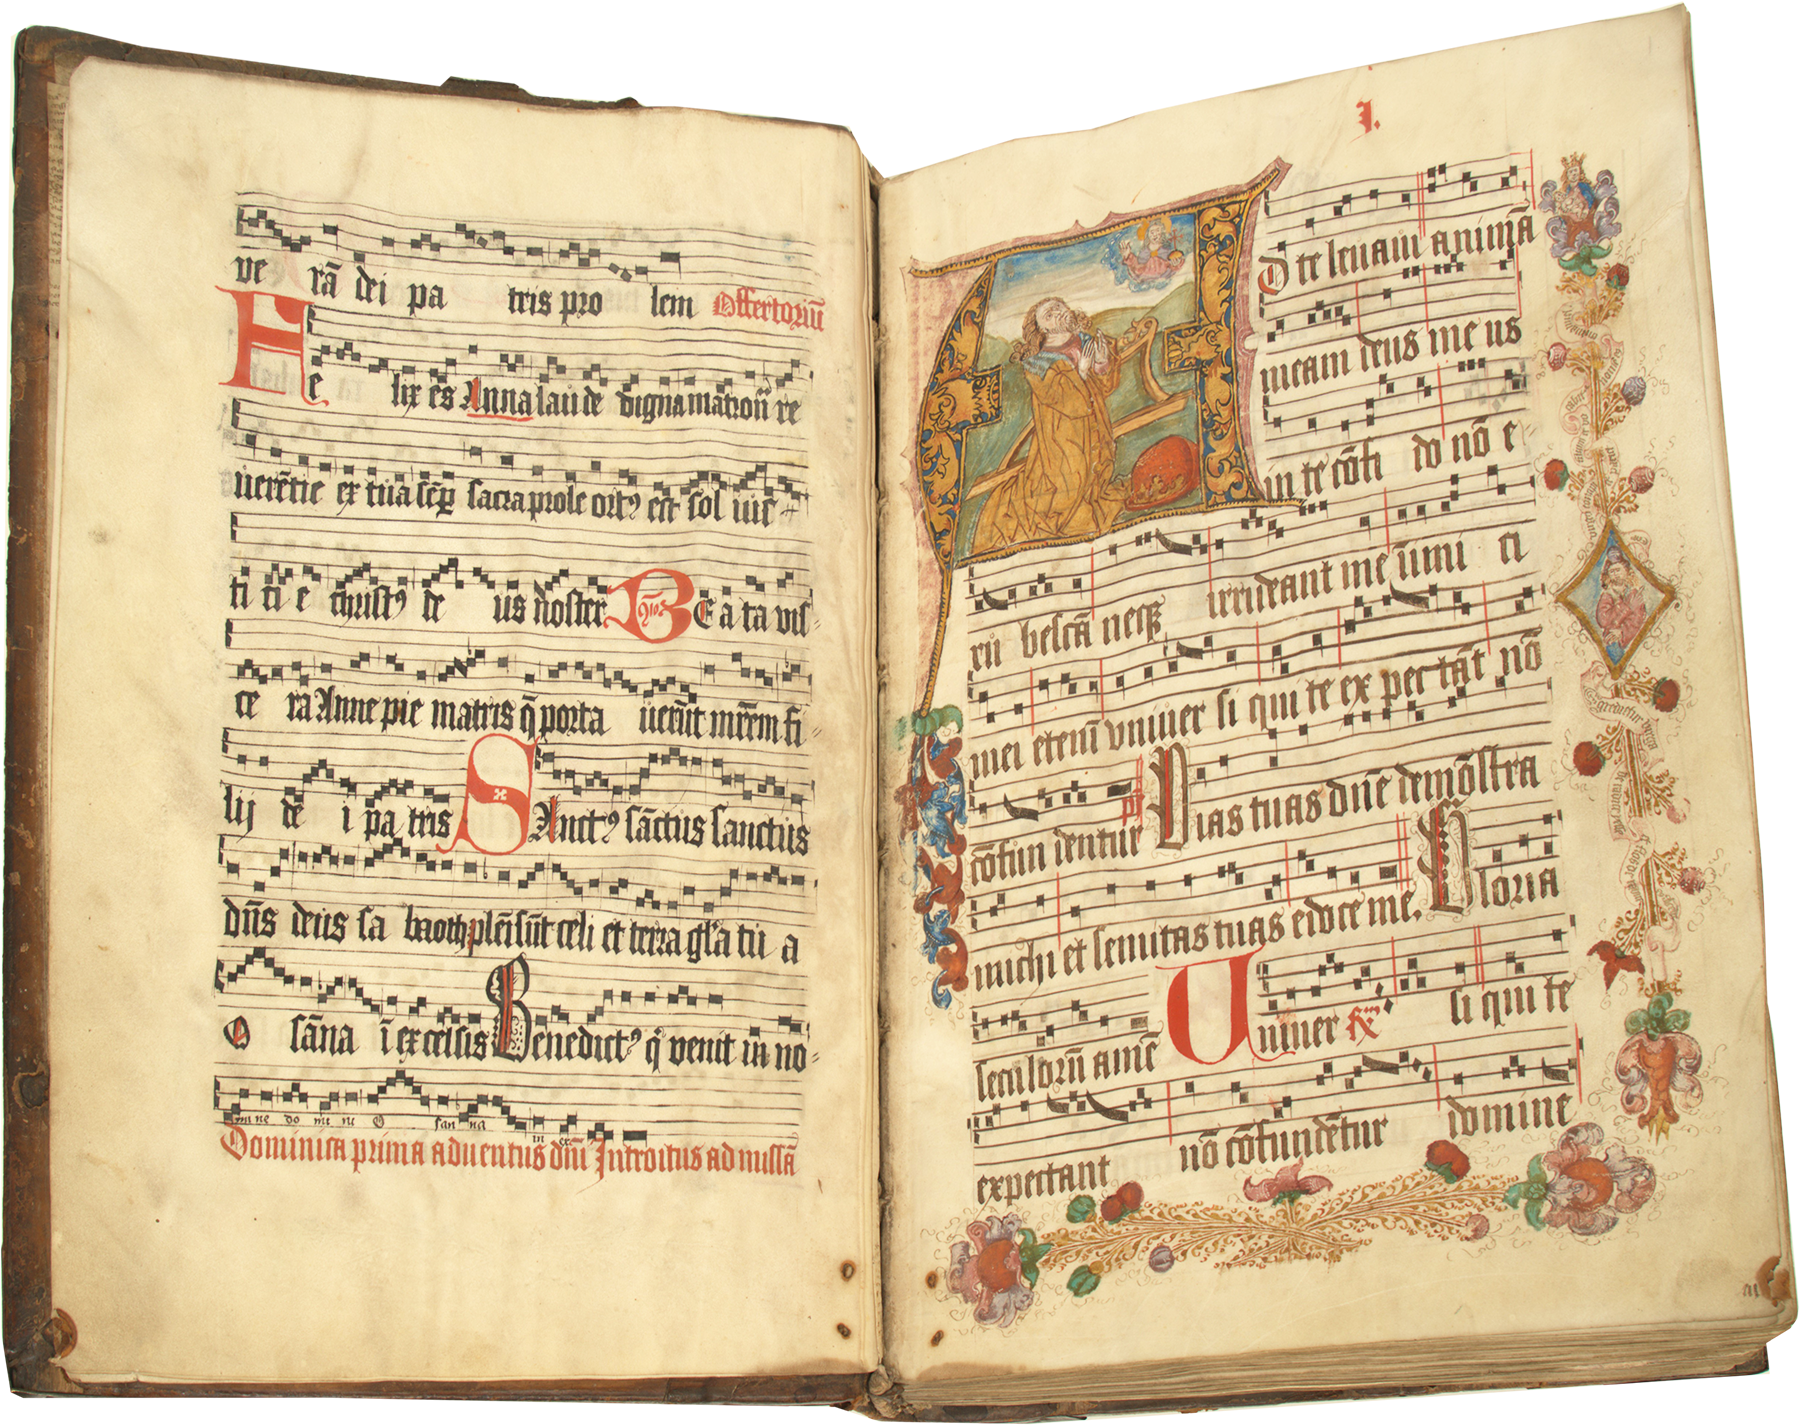 ve rā dei pa tris pro lem Offertoriū
Fe lix es Anna laude digna matronū re
uerētie ex tua sēp sacra prole ortꝰ est sol iusti
ti ti e christꝰ de us noster Be a ta vis
ce ra Anne pie matris q̄ porta uerūt mr̄em fi
lij de i pa tris SAnctꝰ sāctus sanctus
dn̄s deus sa baoth plēi sūt celi et terra gl̄a tu a
O sāna ī excelsis Benedictꝰ q̄ venit in no
mi ne do mi ni O san na in ex
Dominica prima aduentus dn̄i Introitus ad missā
I.
AD te leuaui animā
meam deus me us
in te cōfi do nō e
rubescā neqꝫ irrideant me inimi ci
mei etenī vniuer si qui te expectāt nō
cōfun dentur ps Vias tuas dn̄e demōstra
michi et semitas tuas edoce me. Gloria
seculorū amē Uniuer si qui te
expectant nō cōfundētur domine